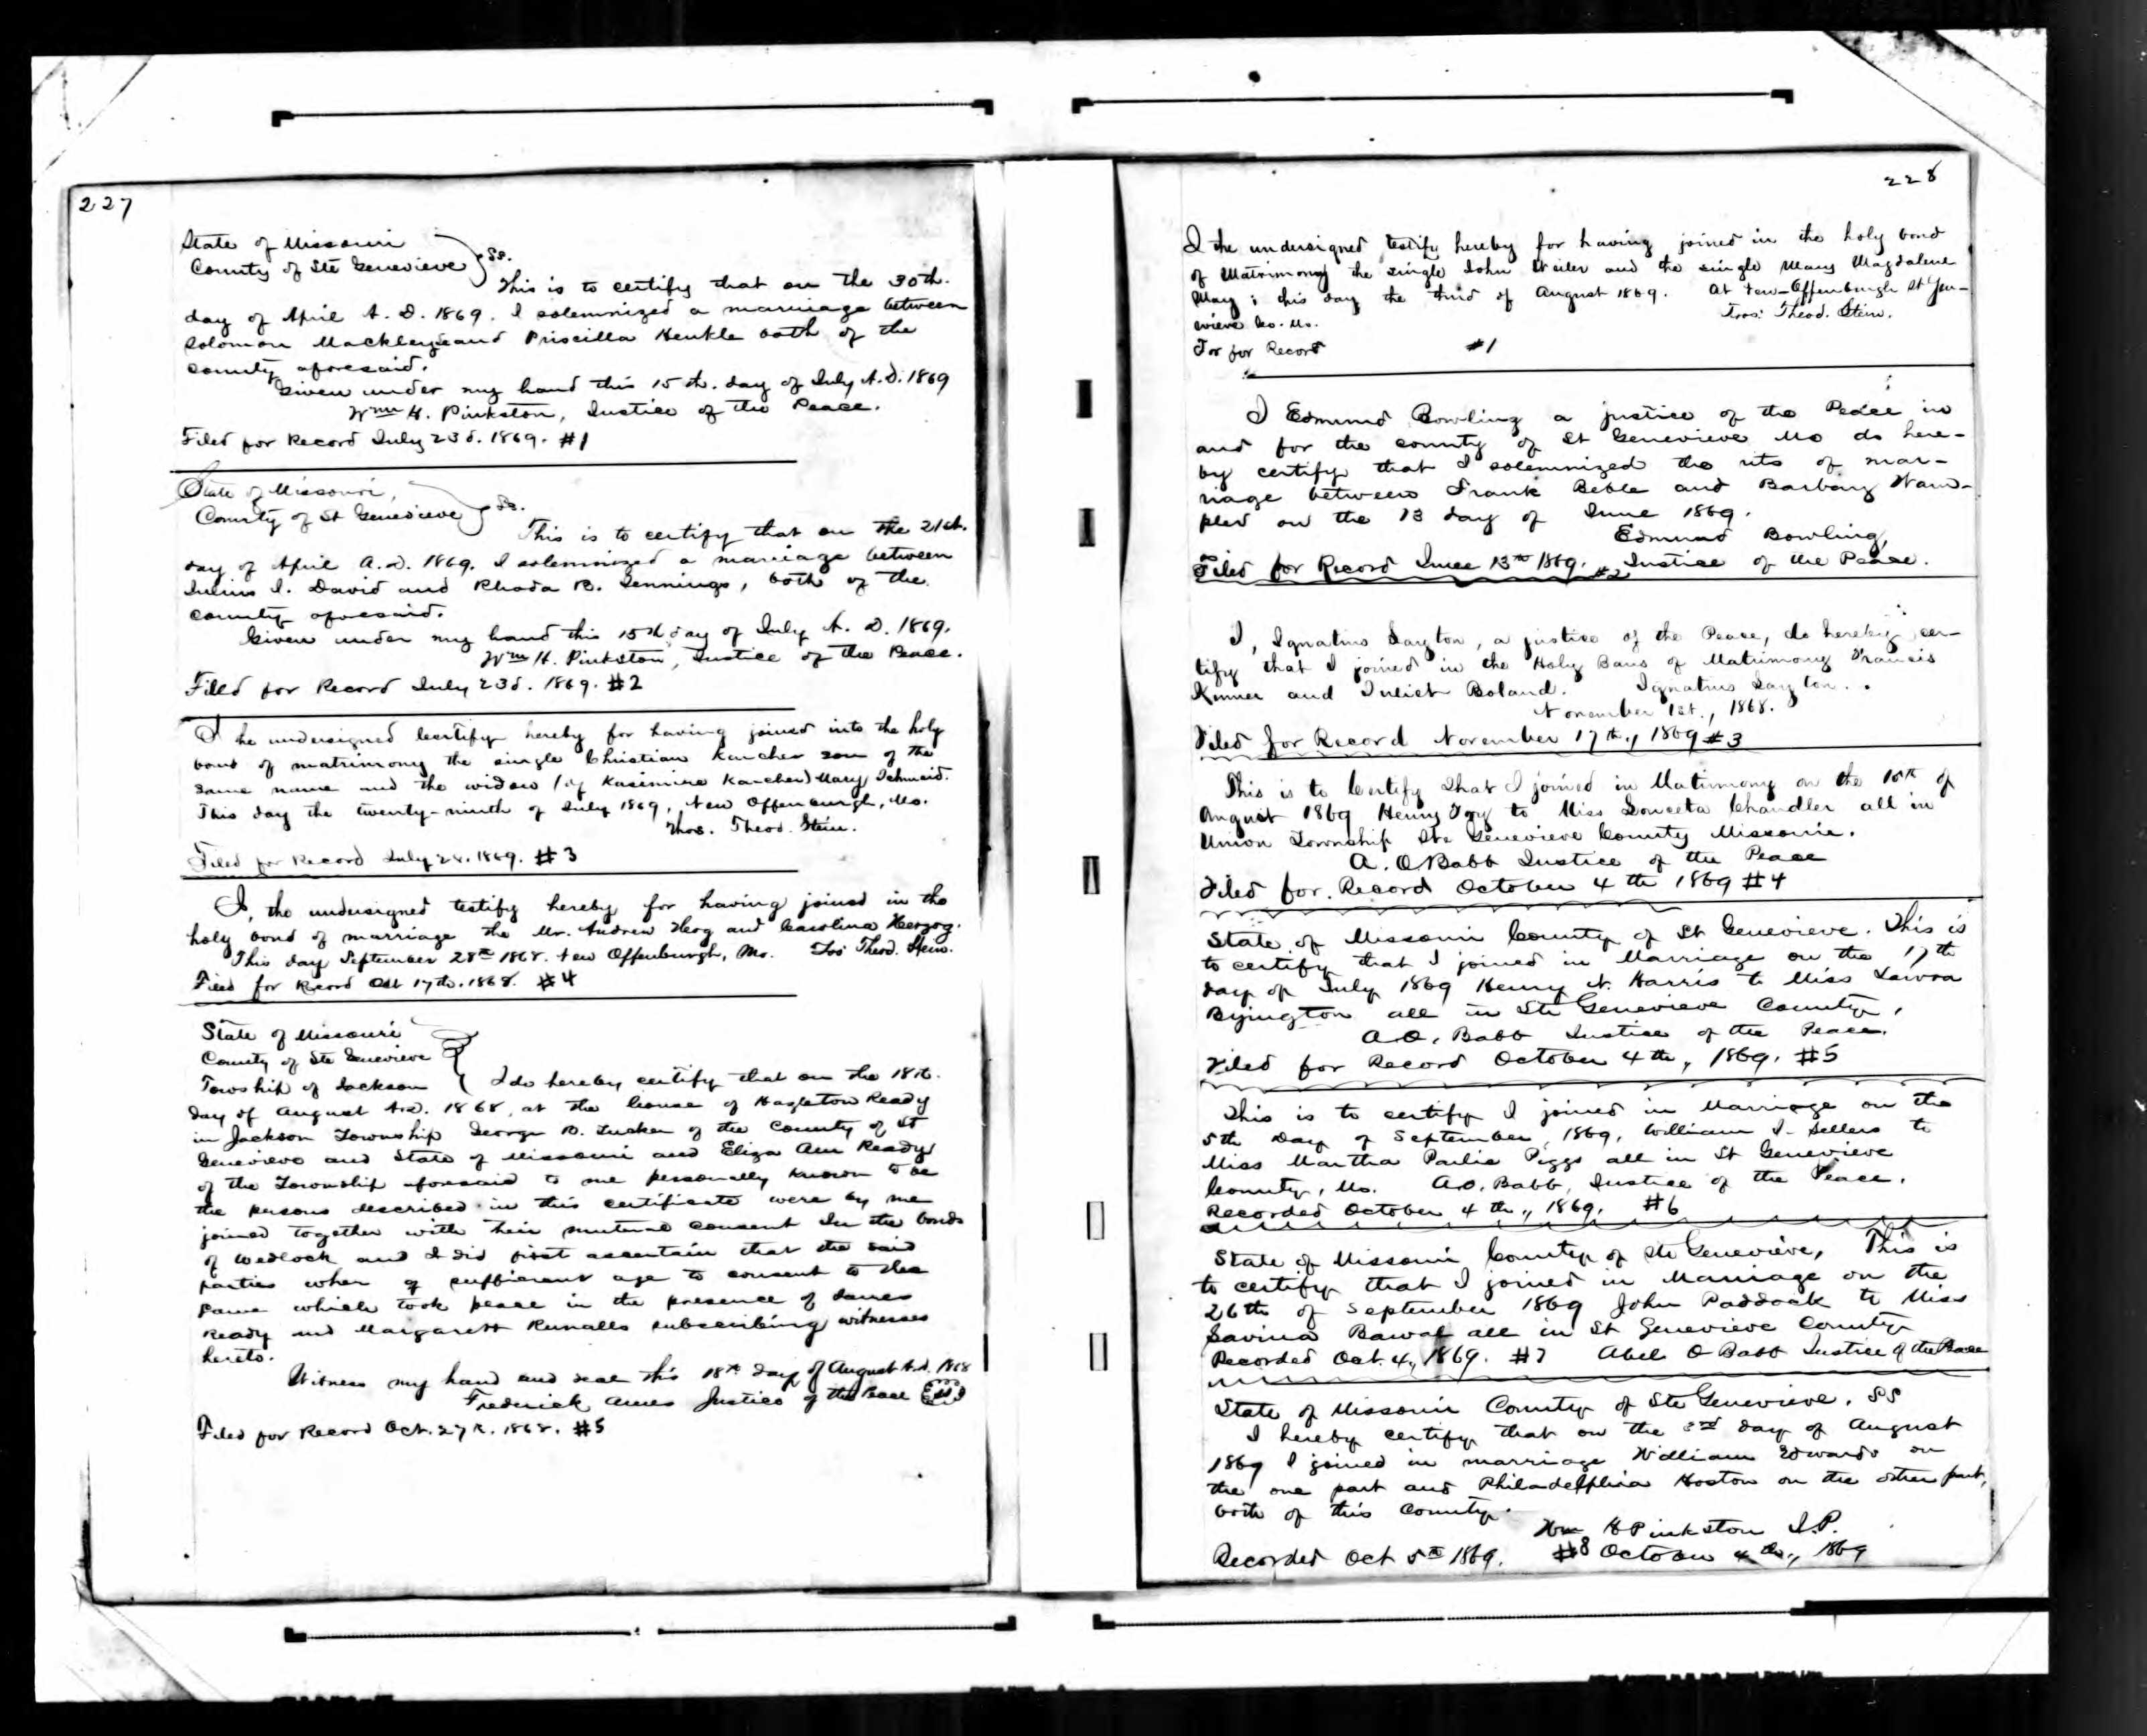 227
State of Missouri
County of Ste Genevieve } SS.
This is to certify that on the 30th.
day of April A. D. 1869. I solemnized a marriage between
Solomon and Priscilla Henkle both of the
county aforesaid.
Given under my hand this 15th. day of July A.D. 1869
Wm H. Pinkston, Justice of the Peace.
Filed for Record July 23d. 1869. #1
State of Missouri,
County of St Genevieve } SS.
This is to certify that on the 21st.
day of April A.D. 1869, I solemnized a marriage between
Julius I. David and Rhoda R. Jennings, both of the
county aforesaid.
Given under my hand this 15th day of July A. D. 1869.
Wm H. Pinkston, Justice of the Peace.
Filed for Record July 23d. 1869. #2
I he undersigned certify hereby for having joined into the holy
bond of matrimony the single Christian Karcher son of the
same name and the widow (of Kasimire Karcher) Mary Schmeid.
This day the twenty-ninth of July 1869, New Offenburgh, Mo.
Thos. Theod. Stein.
Filed for Record July 28. 1869. #3
I, the undersigned testify hereby for having joined in the
holy bond of marriage the Mr. Andrew Herog and Carolina Herzog.
This day September 28th 1868. New Offenburgh, Mo. Fos Theod. Stein.
Filed for Record Oct 17th. 1868. #4
State of Missouri
County of Ste Genevieve
Towship of Jackson } I do hereby certify that on the 18th.
day of August A.D. 1868, at the house of Hazleton Ready
in Jackson Township George B. Tucker of the County of St
Genevieve and State of Missouri and Eliza Ann Ready
of the Township aforesaid to me personally known to be
the persons described in this certificate were by me
joined together with their mutual consent In the bonds
of Wedlock and I did first ascertain that the said
parties wher of sufficient age to consent to the
same which took peace in the presence of James
Ready and Margarett Runalls subscribing witnesses
hereto.
Witness my hand and seal this 18th day of August A.D. 1868
Frederick Ames Justice of the Peace
Filed for Record Oct. 27th. 1868. #5
228
I the undersigned testify hereby for having joined in the holy bond
of Matrimony the single John Weiler and the single Mary Magdalene
May; this day the third of August 1869. At New-Offenburgh St Gen-
evieve Co. Mo. Fros: Theod. Stein.
For for Record #1
I Edmund Bowling a justice of the Peace in
and for the county of St Genevieve Mo do here-
by certify that I solemnized the rits of mar-
riage between Frank Beble and Barbary Wam-
pler on the 13 day of June 1869.
Edmund Bowling,
Filed for Record June 13th 1869. #2 Justice of the Peace.
I, Ignatius Layton, a justice of the Peace, do hereby cer-
tify that I joined in the Holy Bans of Matrimony Francis
Kinner and Juliet Boland. Ignatius Layton.
November 1st., 1868.
Filed for Record November 17th., 1869 #3
This is to Certify that I joined in Matrimony on the 15th of
August 1869 Henry to Miss Chandler all in
Union Township Ste Genevieve County Missouri.
A. O. Babb Justice of the Peace
Filed for Record October 4th 1869 #4
State of Missouri County of St Genevieve. This is
to certify that I joined in Marriage on the 17th
day of July 1869 Henry N. Harris to Miss Lawra
Byington all in Ste Genevieve County,
A.O. Babb Justice of the Peace.
Filed for Record October 4th., 1869. #5
This is to certify I joined in Marriage on the
5th Day of September, 1869, William J. Sellers to
Miss Martha Paulie Piggs all in St Genevieve
County, Mo. A.O. Babb, Justice of the Peace.
Recorded October 4th., 1869. #6
State of Missouri County of Ste Genevieve, This is
to certify that I joined in Marriage on the
26th of September 1869 John Paddock to Miss
Savina all in St Genevieve County
Recorded Oct. 4., 1869. #7 Abel O Babb Justice of the Peace
State of Missouri County of Ste Genevieve, SS
I hereby certify that on the 3rd day of August
1869 I joined in marriage William Edwards on
the one part and Philadelphia Hoston on the other part,
both of this County.
Wm H Pinkston J.P.
Recorded Oct 5th 1869. #8 October 4th., 1869